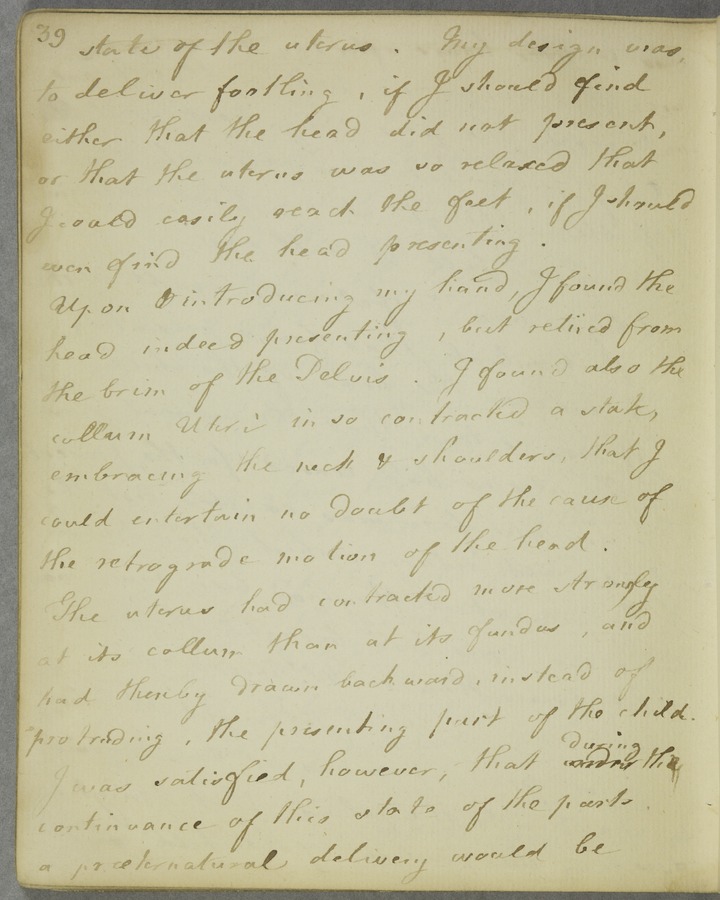 39
state of the uterus. My design was,
to deliver footling, if I should find
either that the head did not present,
or that the uterus was so relaxed that
I could easily reach the feet, if I should
even find the head presenting.
Upon introducing my hand, I found the
head indeed presenting, but retired from
the brim of the Pelvis. I found also the
collum Uteri in so contracted a state,
embracing the neck & shoulders, that I
could entertain no doubt of the cause of
the retrograde motion of the head.
The uterus had contracted more strongly
at its collum than at its fundus, and
had thereby drawn backward, instead of
protruding, the presenting part of the child.
during
I was satisfied, however, that the
continuance of this state of the parts.
a præternatural delivery would be